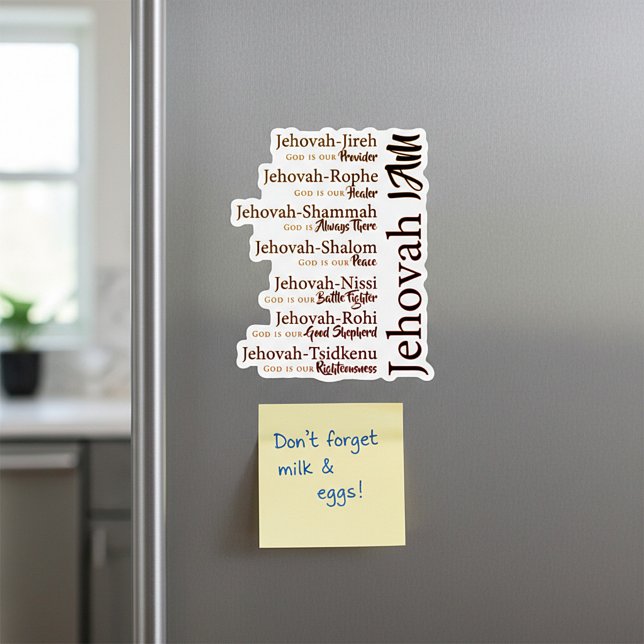 Jehovah-Jireh
GOD IS OUR Provider
Jehovah-Rophe
GOD IS OUR Healer
Jehovah-Shammah
GOD IS Always There
Jehovah-Shalom
GOD IS OUR Peace
Jehovah-Nissi
GOD IS OUR Battle Fighter
Jehovah-Rohi
GOD IS OUR Good Shepherd
Jehovah-Tsidkenu
GOD IS OUR Righteousness
Jehovah I AM
Don't forget
milk &
eggs!